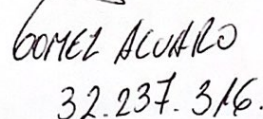 GOMEZ ALVARO
32.237.316.